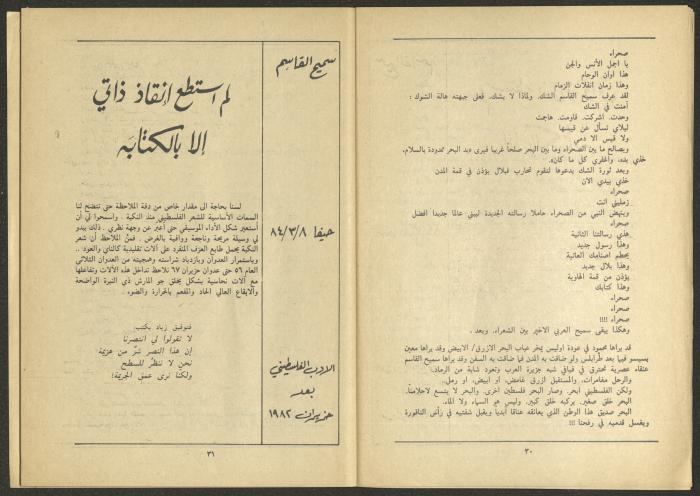 صحراء
يا اجمل الأنس والجن
هذا اوان الوحام
وهذا زمان انفلات الزمام
لقد عرف سميح القاسم الشك. ولماذا لا يشك. فعلى جبهته هالة الشوك :
أمنت في الشك
وحدت. اشركت. قاومت. هاجمت
ليلاي تسأل عن قيسها
ولا قيس الا دمي
ويصالح ما بين الصحراء وما بين البحر صلحاً غريبا فيرى «يد البحر ممدودة بالسلام.
خذي يده. واغفري كل ما كان».
وبعد ثورة الشك يدعوها لتقوم لمحارب فبلال يؤذن في قمة المدن
خذي بيدي الان
صحراء
زمليني انت
وينهض النبي من الصحراء حاملا رسالته الجديدة ليبني عالما جديدا افضل
صحراء
هذي رسالتنا الثانية
وهذا رسول جديد
يحطم اصنامك العاتية
وهذا بلال جديد
يؤذن من قمة الهاوية
وهذا كتابك
صحراء
صحراء
صحراء !!!!
وهكذا يبقى سميح العربي الاخير بين الشعراء. وبعد .
قد يراها محمود في عودة اوليس يمخر عباب البحر الازرق/ الابيض وقد يراها معين
بسيسو فيها بعد طرابلس ولو ضاقت به المدن فما ضاقت به السفن وقد يراها سميح القاسم
عنقاء عصرية تحترق في فيافي شبه جزيرة العرب وتعود شابة من الرماد.
والرحل مغامرات، والمستقبل ازرق غامض، او ابيض، او رمل..
ولكن الفلسطيني أبحر. وصار البحر فلسطين اخرى. والبحر لا يتسع لاحلامنا.
البحر خلق صغير. يركبه خلق كبير. وليس هو السماء ولا الماء.
البحر صديق هذا الوطن الذي يعانقه عناقا أبدياً ويقبل شفتيه في رأس الناقورة
ويغسل قدميه في رفحنا !!!
٣٠
سميح القاسم
حيفا ٨٤/٣/٨
الادب الفلسطيني
بعد
حزيران ١٩٨٢
لم استطع إنقاذ ذاتي
إلا بالكتابة
لسنا بحاجة الى مقدار خاص من دقة الملاحظة حتى تتضح لنا
السمات الأساسية للشعر الفلسطيني منذ النكبة . واسمحوا لي أن
أستعير شكل الأداء الموسيقي حتى أعبر عن وجهة نظري . ذلك يبدو
لي وسيلة مريحة وناجعة ووافية بالغرض . فمن الملاحظ أن شعر
النكبة يحمل طابع العزف المنفرد على آلات تقليدية كالناي والعود ..
وباستمرار العدوان وبازدياد شراسته وهمجيته من العدوان الثلاثي
العام ٥٦ حتى عدوان حزيران ٦٧ نلاحظ تداخل هذه الآلات وتفاعلها
مع آلات نحاسية بشكل يخلق جو المارش ذي النبرة الواضحة
والايقاع العالي الحاد والمفعم بالحرارة والضوء .
فتوفيق زياد يكتب:
لا تقولوا لي انتصرنا
إن هذا النصر شرّ من هزيمة
نحن لا ننظر للسطح
ولكنا نرى عمق الجريمة!
٣١